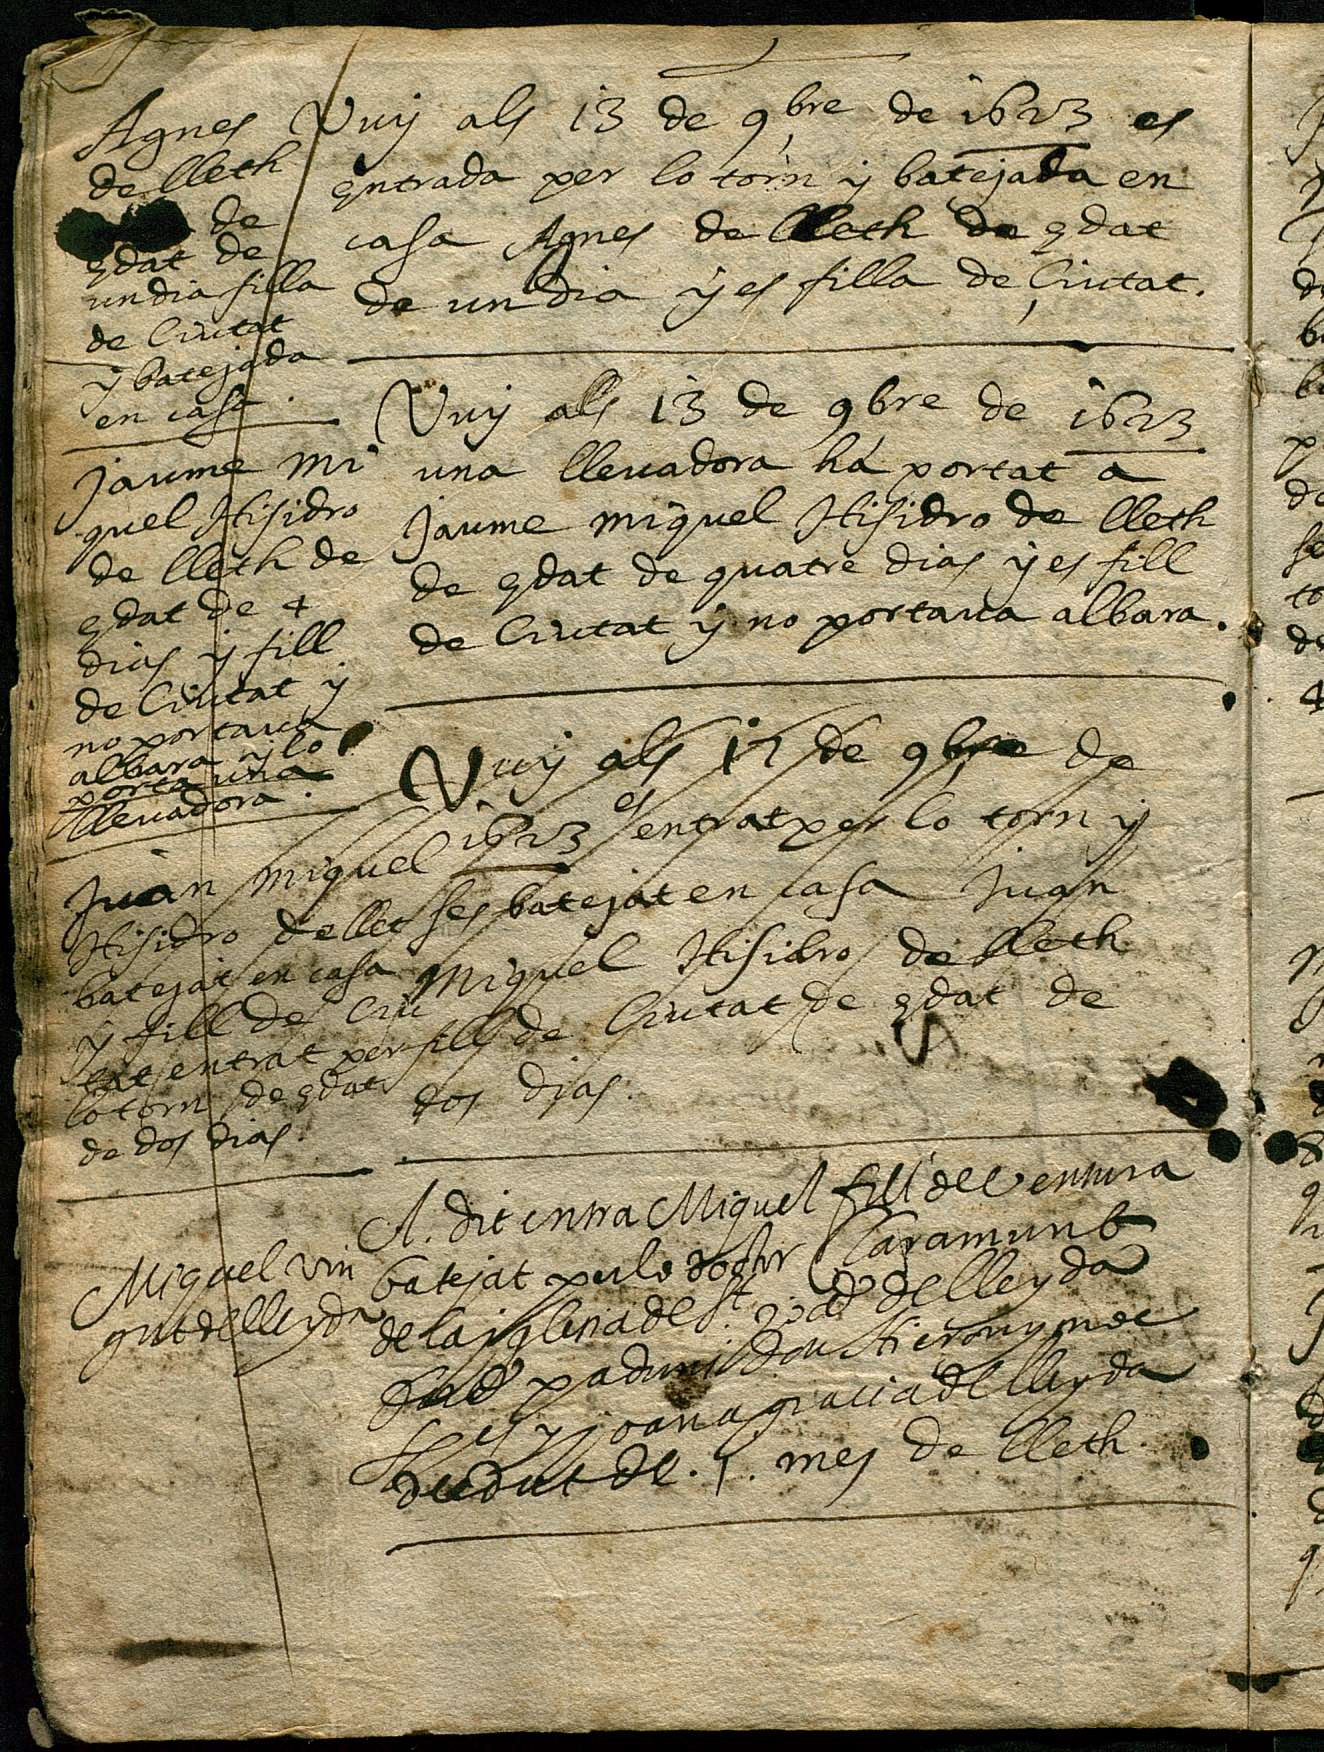 Agnes
de lleth
de
edat de
un dia filla
de Ciutat
y batejada
en casa.
Vuy als 13 de 9bre de 1623 es
entrada per lo torn y batejada en
casa Agnes de lleth de edat
de un dia y es filla de Ciutat.
Jaume Mi
quel Hisidro
de lleth de
edat de 4
dias y fill
de Ciutat y
no portava
albara y lo
porta una
llevadora.
Vuy als 13 de 9bre de 1623
una llevadora há portat a
Jaume Miquel Hisidro de lleth
de edat de quatre dias y es fill
de Ciutat y no portava albara.
Juan Miquel
Hisidro de llet
batejat en casa
y fill de Ciu
tat entrat per
lo torn de edat
de dos dias.
Vuy als 17 de 9bre de
1623 es entrat per lo torn y
ses batejat en casa Juan
Miquel Hisidro de lleth
fill de Ciutat de edat de
dos dias.
Miquel vin
gut de lleyda
A. dit entra Miquel fill de Ventura
batejat per lo doctor Claramunt
de la iglesia de St. de lleyda
padrins don Hieronym
y Joana gracia de lleyda
de edat de .1. mes de lleth